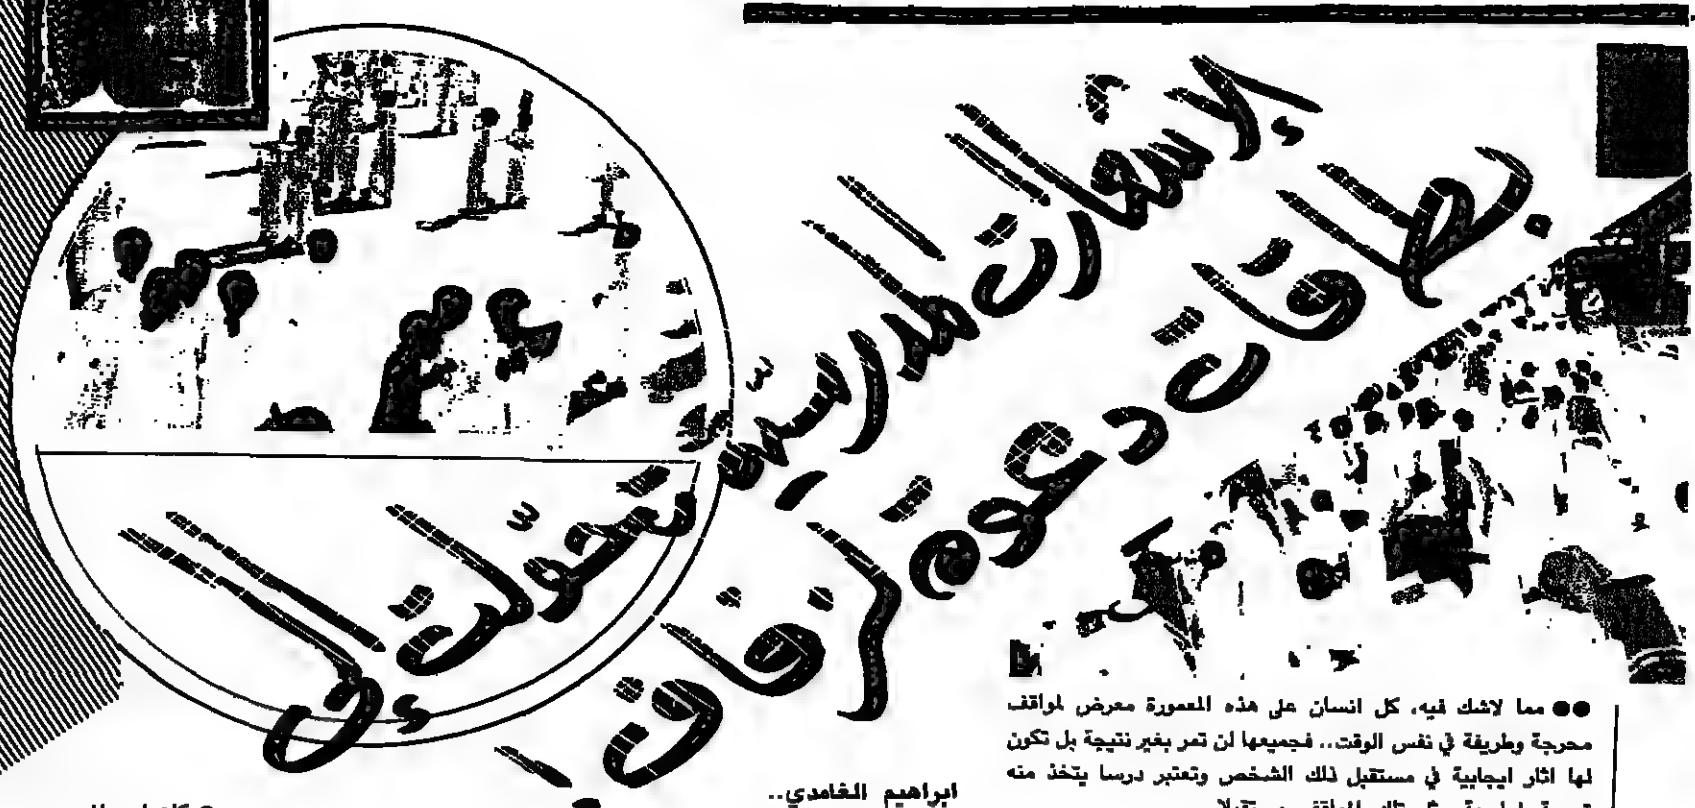 الإشعارات المدرسية تحولت إلى
بطاقات دعوة زفاف
●● مما لاشك فيه، كل انسان على هذه المعمورة معرض لمواقف
محرجة وطريفة في نفس الوقت.. فجميعها لن تمر بغير نتيجة بل تكون
لها اثار ايجابية في مستقبل ذلك الشخص وتعتبر درسا يتخذ منه
ابراهيم الغامدي..